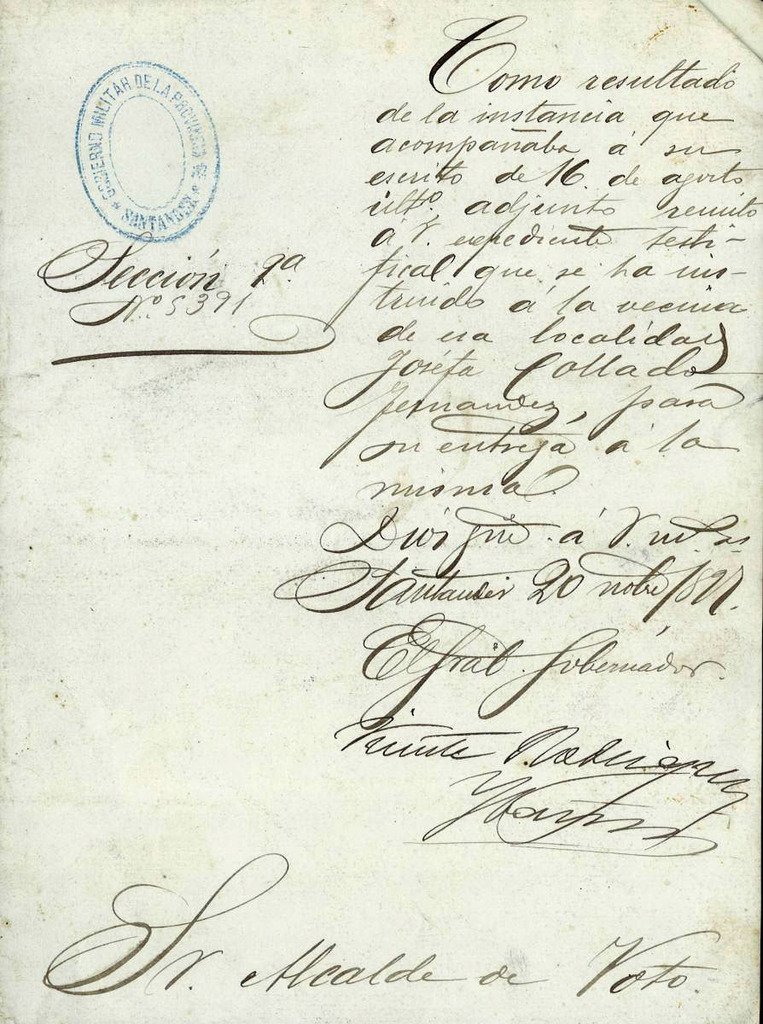 GOBIERNO MILITAR DE LA PROVINCIA DE
* SANTANDER *
Sección 2ª
Nº 5391
Como resultado
de la instancia que
acompañaba á su
escrito de 16 de agosto
ultº, adjunto remito
á V. expediente testi-
fical que se ha ins-
truido á la vecina
de esa localidad
Josefa Collado
Fernandez, para
su entrega á la
misma.
Dios gue á V. m.s as
Santander 20 nobre 1897.
El Gral Gobernador.
Vicente Rodriguez
Sr. Alcalde de Voto.